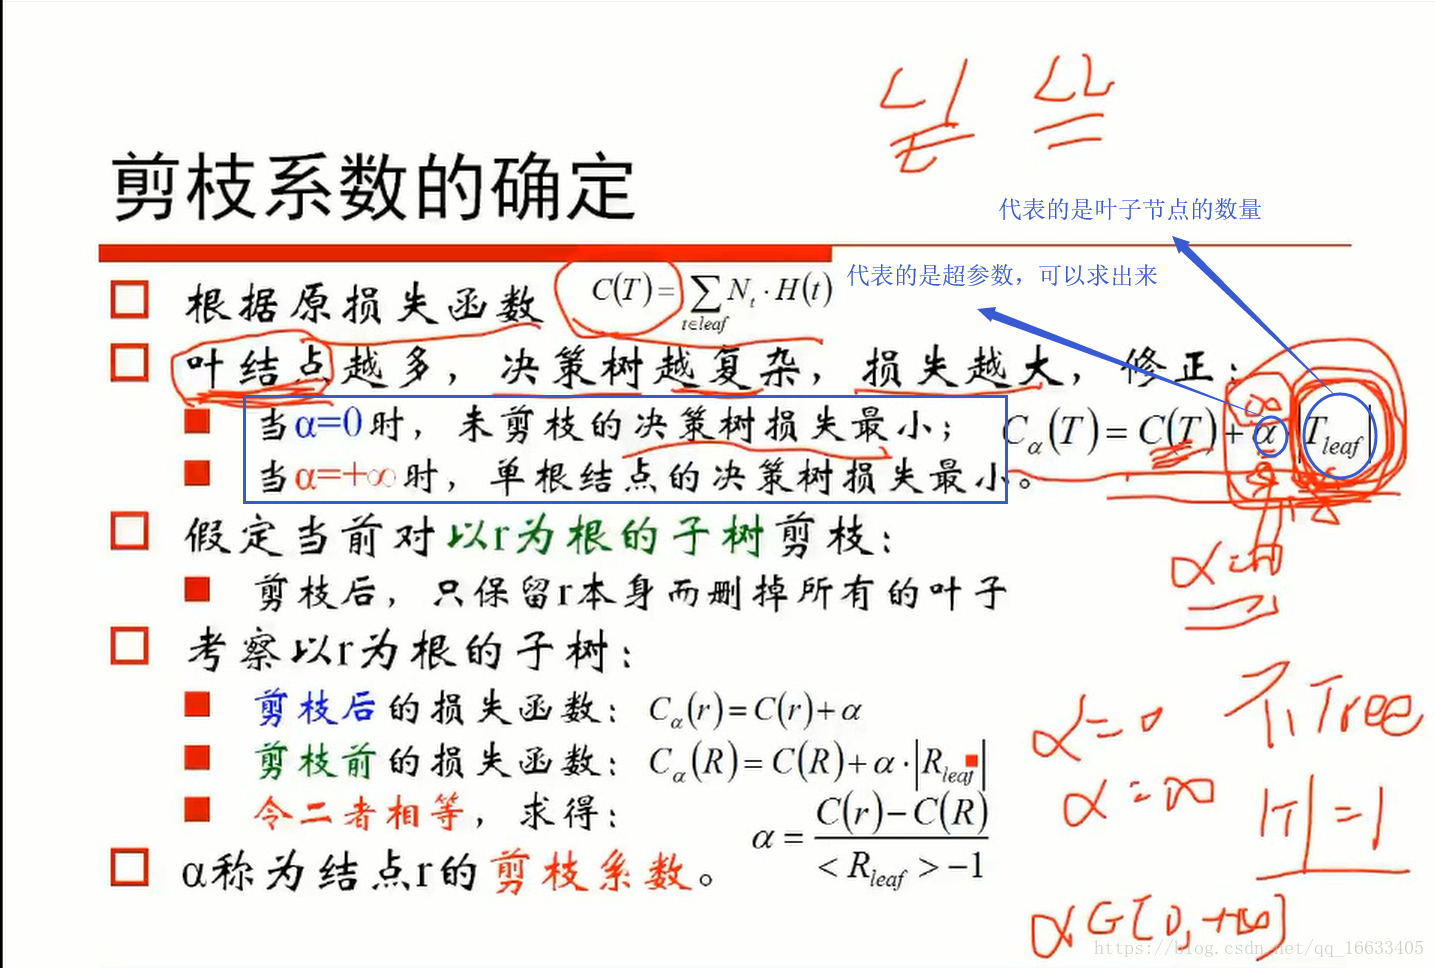 L1 L2
剪枝系数的确定
代表的是叶子节点的数量
代表的是超参数，可以求出来
根据原损失函数 C(T)=∑t∈leaf Nt·H(t)
叶结点越多，决策树越复杂，损失越大，修正：
当α=0时，未剪枝的决策树损失最小； Cα(T)=C(T)+α·|Tleaf|
当α=+∞时，单根结点的决策树损失最小。
假定当前对以r为根的子树剪枝：
α=∞
剪枝后，只保留r本身而删掉所有的叶子
考察以r为根的子树：
剪枝后的损失函数：Cα(r)=C(r)+α
α=0 Tree
剪枝前的损失函数：Cα(R)=C(R)+α·|Rleaf|
α=∞ |T|=1
令二者相等，求得： α=C(r)−C(R)/<Rleaf>−1
α称为结点r的剪枝系数。
α∈[0,+∞]
https://blog.csdn.net/qq_16633405